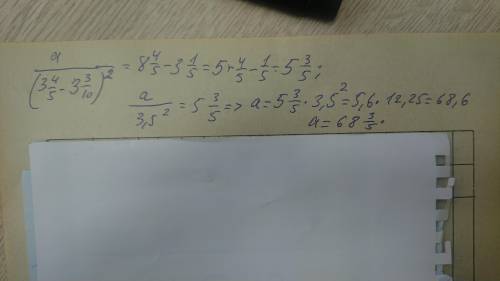 a/(3 4/5 - 3 3/10)² = 8 4/5 - 3 1/5 = 5 + 4/5 - 1/5 = 5 3/5;
a/3,5² = 5 3/5 => a = 5 3/5 · 3,5² = 5,6 · 12,25 = 68,6
a = 68 3/5.